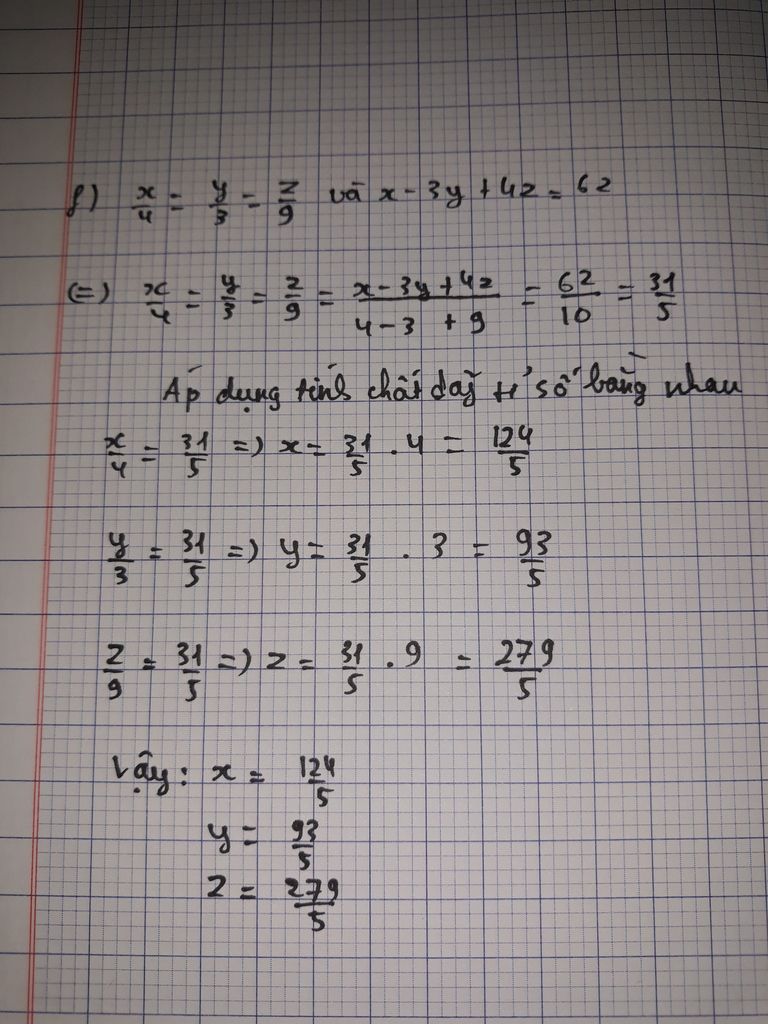 f) x/4 = y/3 = z/9 và x - 3y + 4z = 62
(=) x/4 = y/3 = z/9 = x-3y+4z/4-3+9 = 62/10 = 31/5
Áp dụng tính chất dãy tỉ số bằng nhau
x/4 = 31/5 =) x = 31/5 . 4 = 124/5
y/3 = 31/5 =) y = 31/5 . 3 = 93/5
z/9 = 31/5 =) z = 31/5 . 9 = 279/5
Vậy: x = 124/5
y = 93/5
z = 279/5